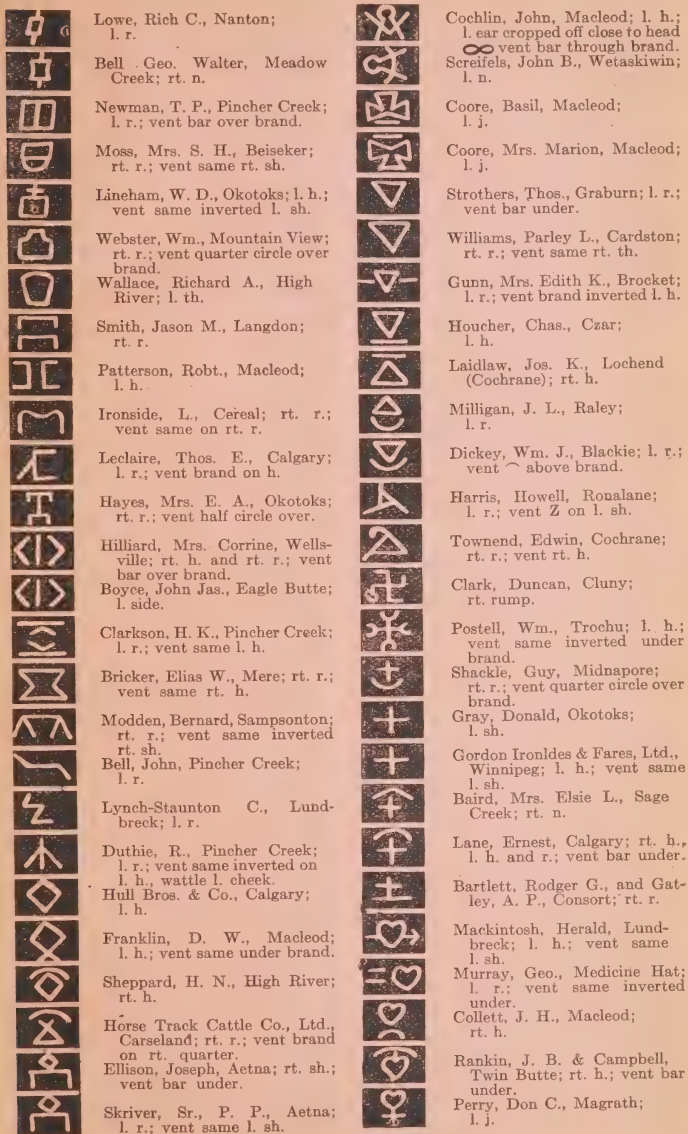 Lowe, Rich C., Nanton;
l. r.
Bell Geo. Walter, Meadow
Creek; rt. n.
Newman, T. P., Pincher Creek;
l. r.; vent bar over brand.
Moss, Mrs. S. H., Beiseker;
rt. r.; vent same rt. sh.
Lineham, W. D., Okotoks; l. h.;
vent same inverted l. sh.
Webster, Wm., Mountain View;
rt. r.; vent quarter circle over
brand.
Wallace, Richard A., High
River; l. th.
Smith, Jason M., Langdon;
rt. r.
Patterson, Robt., Macleod;
l. h.
Ironside, L., Cereal; rt. r.;
vent same on rt. r.
Leclaire, Thos. E., Calgary;
l. r.; vent brand on h.
Hayes, Mrs. E. A., Okotoks;
rt. r.; vent half circle over.
Hilliard, Mrs. Corrine, Wells-
ville; rt. h. and rt. r.; vent
bar over brand.
Boyce, John Jas., Eagle Butte;
l. side.
Clarkson, H. K., Pincher Creek;
l. r.; vent same l. h.
Bricker, Elias W., Mere; rt. r.;
vent same rt. h.
Modden, Bernard, Sampsonton;
rt. r.; vent same inverted
rt. sh.
Bell, John, Pincher Creek;
l. r.
Lynch-Staunton C., Lund-
breck; l. r.
Duthie, R., Pincher Creek;
l. r.; vent same inverted on
l. h., wattle l. cheek.
Hull Bros. & Co., Calgary;
l. h.
Franklin, D. W., Macleod;
l. h.; vent same under brand.
Sheppard, H. N., High River;
rt. h.
Horse Track Cattle Co., Ltd.,
Carseland; rt. r.; vent brand
on rt. quarter.
Ellison, Joseph, Aetna; rt. sh.;
vent bar under.
Skriver, Sr., P. P., Aetna;
l. r.; vent same l. sh.
Cochlin, John, Macleod; l. h.;
l. ear cropped off close to head
∞ vent bar through brand.
Screifels, John B., Wetaskiwin;
l. n.
Coore, Basil, Macleod;
l. j.
Coore, Mrs. Marion, Macleod;
l. j.
Strothers, Thos., Graburn; l. r.;
vent bar under.
Williams, Parley L., Cardston;
rt. r.; vent same rt. th.
Gunn, Mrs. Edith K., Brocket;
l. r.; vent brand inverted l. h.
Houcher, Chas., Czar;
l. h.
Laidlaw, Jos. K., Lochend
(Cochrane); rt. h.
Milligan, J. L., Raley;
l. r.
Dickey, Wm. J., Blackie; l. r.;
vent ⌒ above brand.
Harris, Howell, Ronalane;
l. r.; vent Z on l. sh.
Townend, Edwin, Cochrane;
rt. r.; vent rt. h.
Clark, Duncan, Cluny;
rt. rump.
Postell, Wm., Trochu; l. h.;
vent same inverted under
brand.
Shackle, Guy, Midnapore;
rt. r.; vent quarter circle over
brand.
Gray, Donald, Okotoks;
l. sh.
Gordon Ironldes & Fares, Ltd.,
Winnipeg; l. h.; vent same
l. sh.
Baird, Mrs. Elsie L., Sage
Creek; rt. n.
Lane, Ernest, Calgary; rt. h.,
l. h. and r.; vent bar under.
Bartlett, Rodger G., and Gat-
ley, A. P., Consort; rt. r.
Mackintosh, Herald, Lund-
breck; l. h.; vent same
l. sh.
Murray, Geo., Medicine Hat;
l. r.; vent same inverted
under.
Collett, J. H., Macleod;
rt. h.
Rankin, J. B. & Campbell,
Twin Butte; rt. h.; vent bar
under.
Perry, Don C., Magrath;
l. j.